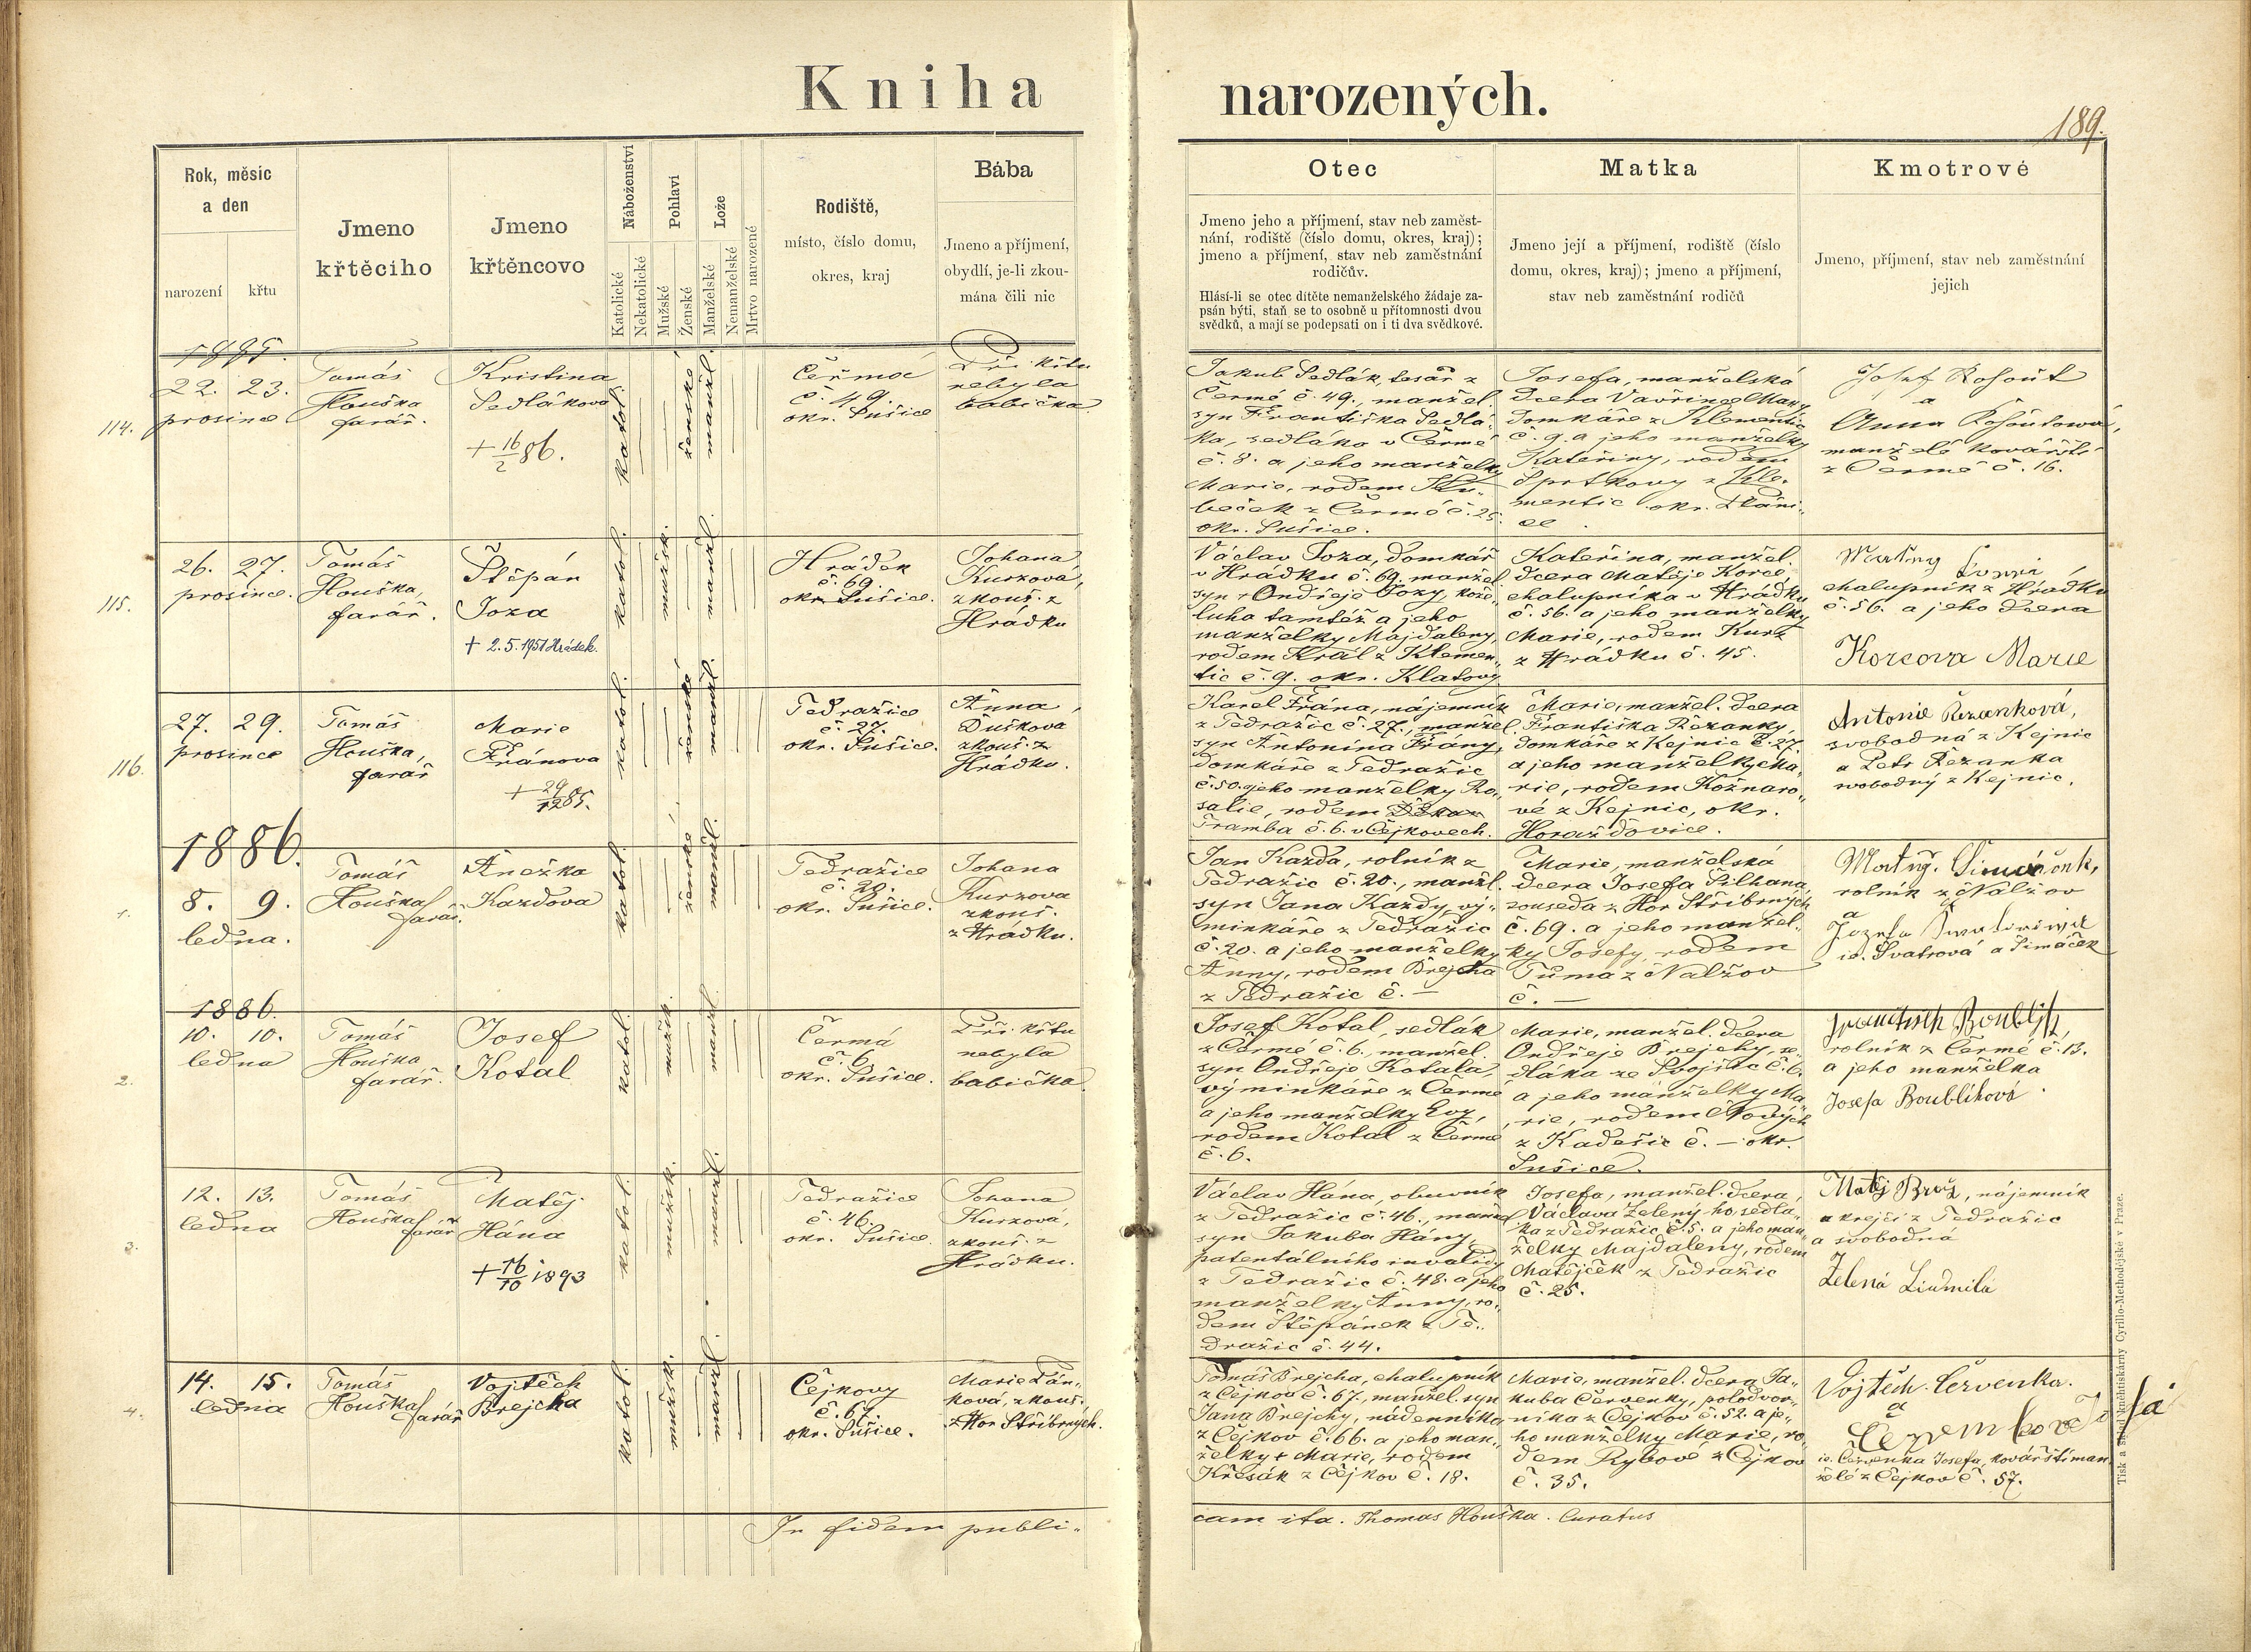 Kniha narozených.
189.
Rok, měsíc
a den
narození
křtu
Jmeno
křtěcího
Jmeno
křtěncovo
Náboženství
Katolické
Nekatolické
Pohlaví
Mužské
Ženské
Lože
Manželské
Nemanželské
Mrtvo narozené
Rodiště,
místo, číslo domu,
okres, kraj
Bába
Jmeno a příjmení,
obydlí, je-li zkou-
mána čili nic
Otec
Jmeno jeho a příjmení, stav neb zaměst-
nání, rodiště (číslo domu, okres, kraj);
jmeno a příjmení, stav neb zaměstnání
rodičův.
Hlásí-li se otec dítěte nemanželského žádaje za-
psán býti, staň se to osobně u přítomnosti dvou
svědků, a mají se podepsati on i ti dva svědkové.
Matka
Jmeno její a příjmení, rodiště (číslo
domu, okres, kraj); jmeno a příjmení,
stav neb zaměstnání rodičů
Kmotrové
Jmeno, příjmení, stav neb zaměstnání
jejich
1885.
114.
22. 23.
prosince
Tomáš
Houška
farář.
Kristina
Sedláková
+ 16/2 86.
katol.
ženské
manžl.
Čermá
č. 49.
okr. Sušice
Při křtu
nebyla
babička
Jakub Sedlák, tesař z
Čermé č. 49., manžel.
syn Františka Sedlá-
ka, sedláka v Čermé
č. 8. a jeho manželky
Marie, rodem
z Čermé č. 25.
okr. Sušice.
Josefa, manželská
dcera Vavřince
domkáře z Klementic
č. 9. a jeho manželky
Kateřiny, rodem
z Kle-
mentic okr. Pláni-
ce.
Josef Kohout
a
Anna Kohoutowá,
manželé kovářští
z Čermé č. 16.
115.
26. 27.
prosince.
Tomáš
Houška,
farář.
Štěpán
Joza
+ 2.5.1951 Hrádek.
katol.
mužsk.
manžl.
Hrádek
č. 69.
okr. Sušice.
Johana
Kurzová,
zkouš. z
Hrádku
Václav Joza, domkář
v Hrádku č. 69. manžel.
syn + Ondřeje Jozy, kože-
luha tamtéž a jeho
manželky Majdaleny,
rodem Král z Klemen-
tic č. 9. okr. Klatovy
Kateřina, manžel.
dcera Matěje Korce,
chalupníka v Hrádku
č. 56. a jeho manželky
Marie, rodem Kurz
z Hrádku č. 45.
chalupník z Hrádku
č. 56. a jeho dcera
Korcova Marie
116.
27. 29.
prosince
Tomáš
Houška,
farář
Marie
Fránova
+ 29/12 85.
katol.
ženské
manžl.
Tedražice
č. 27.
okr. Sušice.
Anna
Dušková
zkouš. z
Hrádku.
Karel Frána, nájemník
z Tedražic č. 27., manžel.
syn Antonína Frány,
domkáře z Tedražic
č. 50. a jeho manželky Ro-
salie, rodem
Tramba č. 6. v Čejkovech.
Marie, manžel. dcera
Františka Řezanky,
domkáře z Kejnic č. 27.
a jeho manželky Ma-
rie, rodem Kožnaro-
vé z Kejnic, okr.
Horažďovice.
Antonie Řezanková,
svobodná z Kejnic
a Petr Řezanka
svobodný z Kejnic.
1886.
1.
8. 9.
ledna.
Tomáš
Houška
farář.
Anežka
Kazdova
katol.
ženské
manžl.
Tedražice
č. 20.
okr. Sušice.
Johana
Kurzova
zkouš.
z Hrádku.
Jan Kazda, rolník z
Tedražic č. 20., manžl.
syn Jana Kazdy, vý-
minkáře z Tedražic
č. 20. a jeho manželky
Anny, rodem Brejcha
z Tedražic č. —
Marie, manželská
dcera Josefa Šilhana,
souseda z Hor Stříbrných
č. 69. a jeho manžel-
ky Josefy, rodem
Tůma z Nalžov
č. —
rolník z Nalžov
a
ic. Svatrová a Šimáček
1886.
2.
10. 10.
ledna
Tomáš
Houška
farář.
Josef
Kotal
katol.
mužsk.
manžl.
Čermá
č. 6.
okr. Sušice.
Při křtu
nebyla
babička.
Josef Kotal, sedlák
z Čermé č. 6., manžel.
syn Ondřeje Kotala,
výminkáře z Čermé
a jeho manželky Evy,
rodem Kotal z Čermé
č. 6.
Marie, manžel. dcera
Ondřeje Brejchy, se-
dláka ze Svojšic č. 6.
a jeho manželky Ma-
rie, rodem Nových
z Kadešic č. — okr.
Sušice.
rolník z Čermé č. 13.
a jeho manželka
Josefa Boublíková
3.
12. 13.
ledna
Tomáš
Houška
farář
Matěj
Hána
+ 16/10 1893
katol.
mužsk.
manžl.
Tedražice
č. 46.
okr. Sušice.
Johana
Kurzová,
zkouš. z
Hrádku.
Václav Hána, obuvník
z Tedražic č. 46., manžel
syn Jakuba Hány,
patentálního invalidy
z Tedražic č. 48. a jeho
manželky Anny, ro-
dem Štěpánek z Te-
dražic č. 44.
Josefa, manžel. dcera
Václava Zeleného, sedlá-
ka z Tedražic č. 5. a jeho man-
želky Majdaleny, rodem
Matějček z Tedražic
č. 25.
Matěj Brož, nájemník
a krejčí z Tedražic
a svobodná
Zelená Liudmila
4.
14. 15.
ledna
Tomáš
Houška
farář
Vojtěch
Brejcha
katol.
mužsk.
manžl.
Čejkovy
č. 67.
okr. Sušice.
Marie Pán-
ková, zkouš.
z Hor Stříbrných.
Tomáš Brejcha, chalupník
z Čejkov č. 67., manžel. syn
Jana Brejchy, nádenníka
z Čejkov č. 66. a jeho man-
želky + Marie, rodem
Křesák z Čejkov č. 18.
Marie, manžel. dcera Ja-
kuba Červenky, polodvor-
níka z Čejkov č. 52. a je-
ho manželky Marie, ro-
dem Rybové z Čejkov
č. 35.
Vojtěch Červenka.
a
ic. Červenka Josefa, kovářští man-
želé z Čejkov č. 57.
In fidem publi-
cam ita. Thomas Houška. Curatus
Tisk a sklad knihtiskárny Cyrillo-Methodějské v Praze.